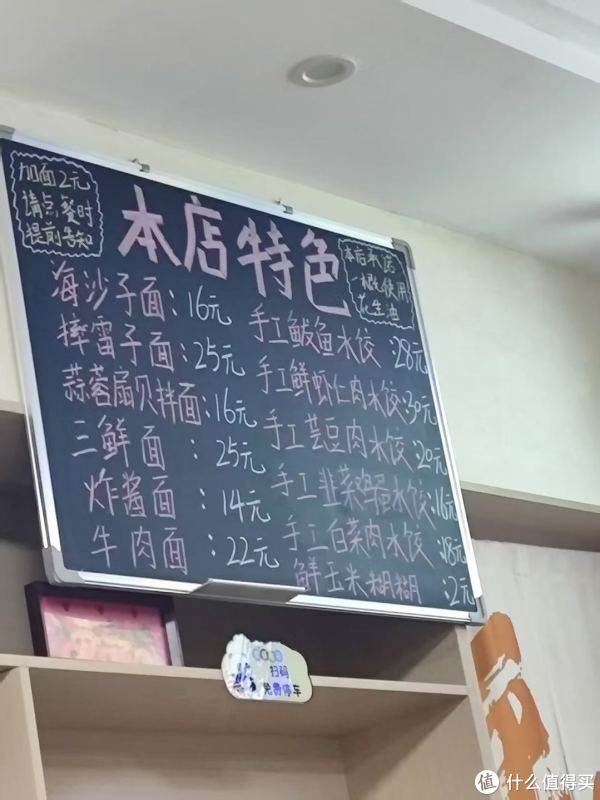 加面2元
请点餐时
提前告知
本店特色
本店承诺
一概使用
花生油
海沙子面：16元
摔雷子面：25元
蒜蓉扇贝拌面：16元
三鲜面：25元
炸酱面：14元
牛肉面：22元
手工鲅鱼水饺：28元
手工鲜虾仁肉水饺：30元
手工芸豆肉水饺：20元
手工韭菜鸡蛋水饺：16元
手工白菜肉水饺：18元
鲜玉米糊糊：2元
扫码
免费停车
值 什么值得买